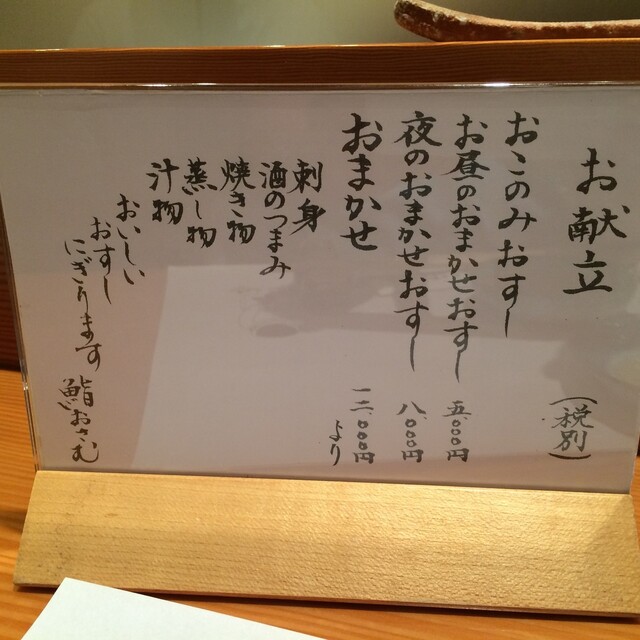 お献立 (税別)
おこのみおすし
お昼のおまかせおすし 五.〇〇〇円
夜のおまかせおすし 八.〇〇〇円
おまかせ 一三.〇〇〇円より
刺身
酒のつまみ
焼き物
蒸し物
汁物
おいしい
おすし
にぎります
鮨おさむ